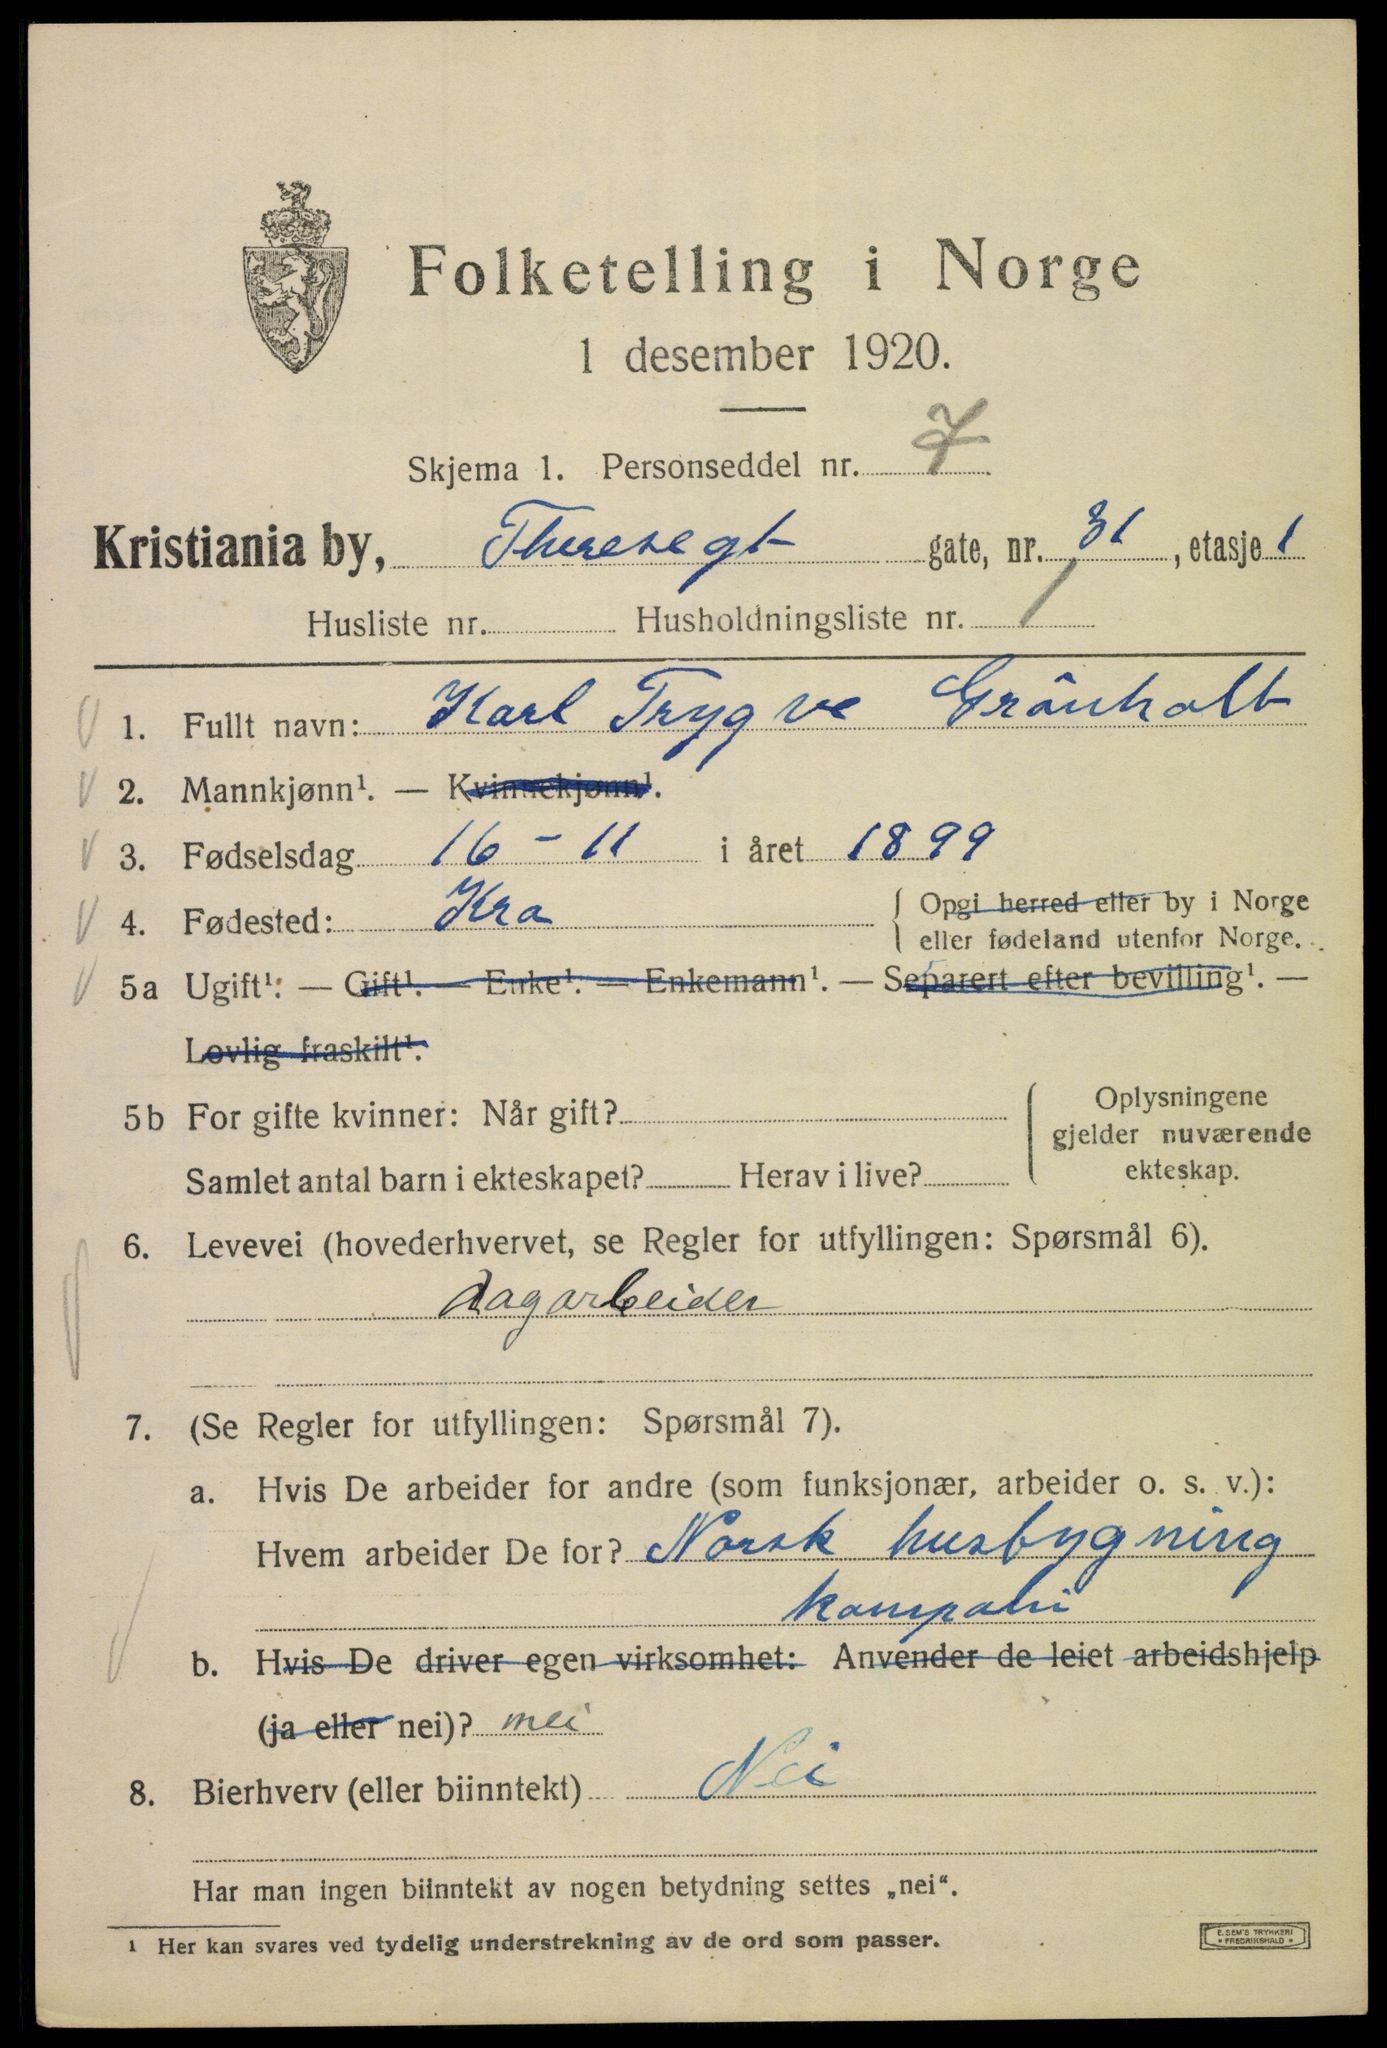 Folketelling i Norge
1 desember 1920.
Skjema 1. Personseddel nr. 7
Kristiania by, Theresegt gate, nr. 31, etasje 1
Husliste nr. Husholdningsliste nr. 1
1. Fullt navn: Karl Trygve Grönholt
2. Mannkjønn¹. — Kvinnekjønn¹.
3. Fødselsdag 16 - 11 i året 1899
4. Fødested: Kra { Opgi herred eller by i Norge
eller fødeland utenfor Norge.
5a Ugift¹. — Gift¹. — Enke¹. — Enkemann¹. — Separert efter bevilling¹. —
Lovlig fraskilt¹.
5b For gifte kvinner: Når gift? { Oplysningene
gjelder nuværende
Samlet antal barn i ekteskapet? Herav i live? ekteskap.
6. Levevei (hovederhvervet, se Regler for utfyllingen: Spørsmål 6).
dagarbeider
7. (Se Regler for utfyllingen: Spørsmål 7).
a. Hvis De arbeider for andre (som funksjonær, arbeider o. s. v.):
Hvem arbeider De for? Norsk husbygning
kompani
b. Hvis De driver egen virksomhet: Anvender de leiet arbeidshjelp
(ja eller nei)? nei
8. Bierhverv (eller biinntekt) Nei
Har man ingen biinntekt av nogen betydning settes „nei“.
¹ Her kan svares ved tydelig understrekning av de ord som passer.
E. SEM'S TRYKKERI
* FREDRIKSHALD *